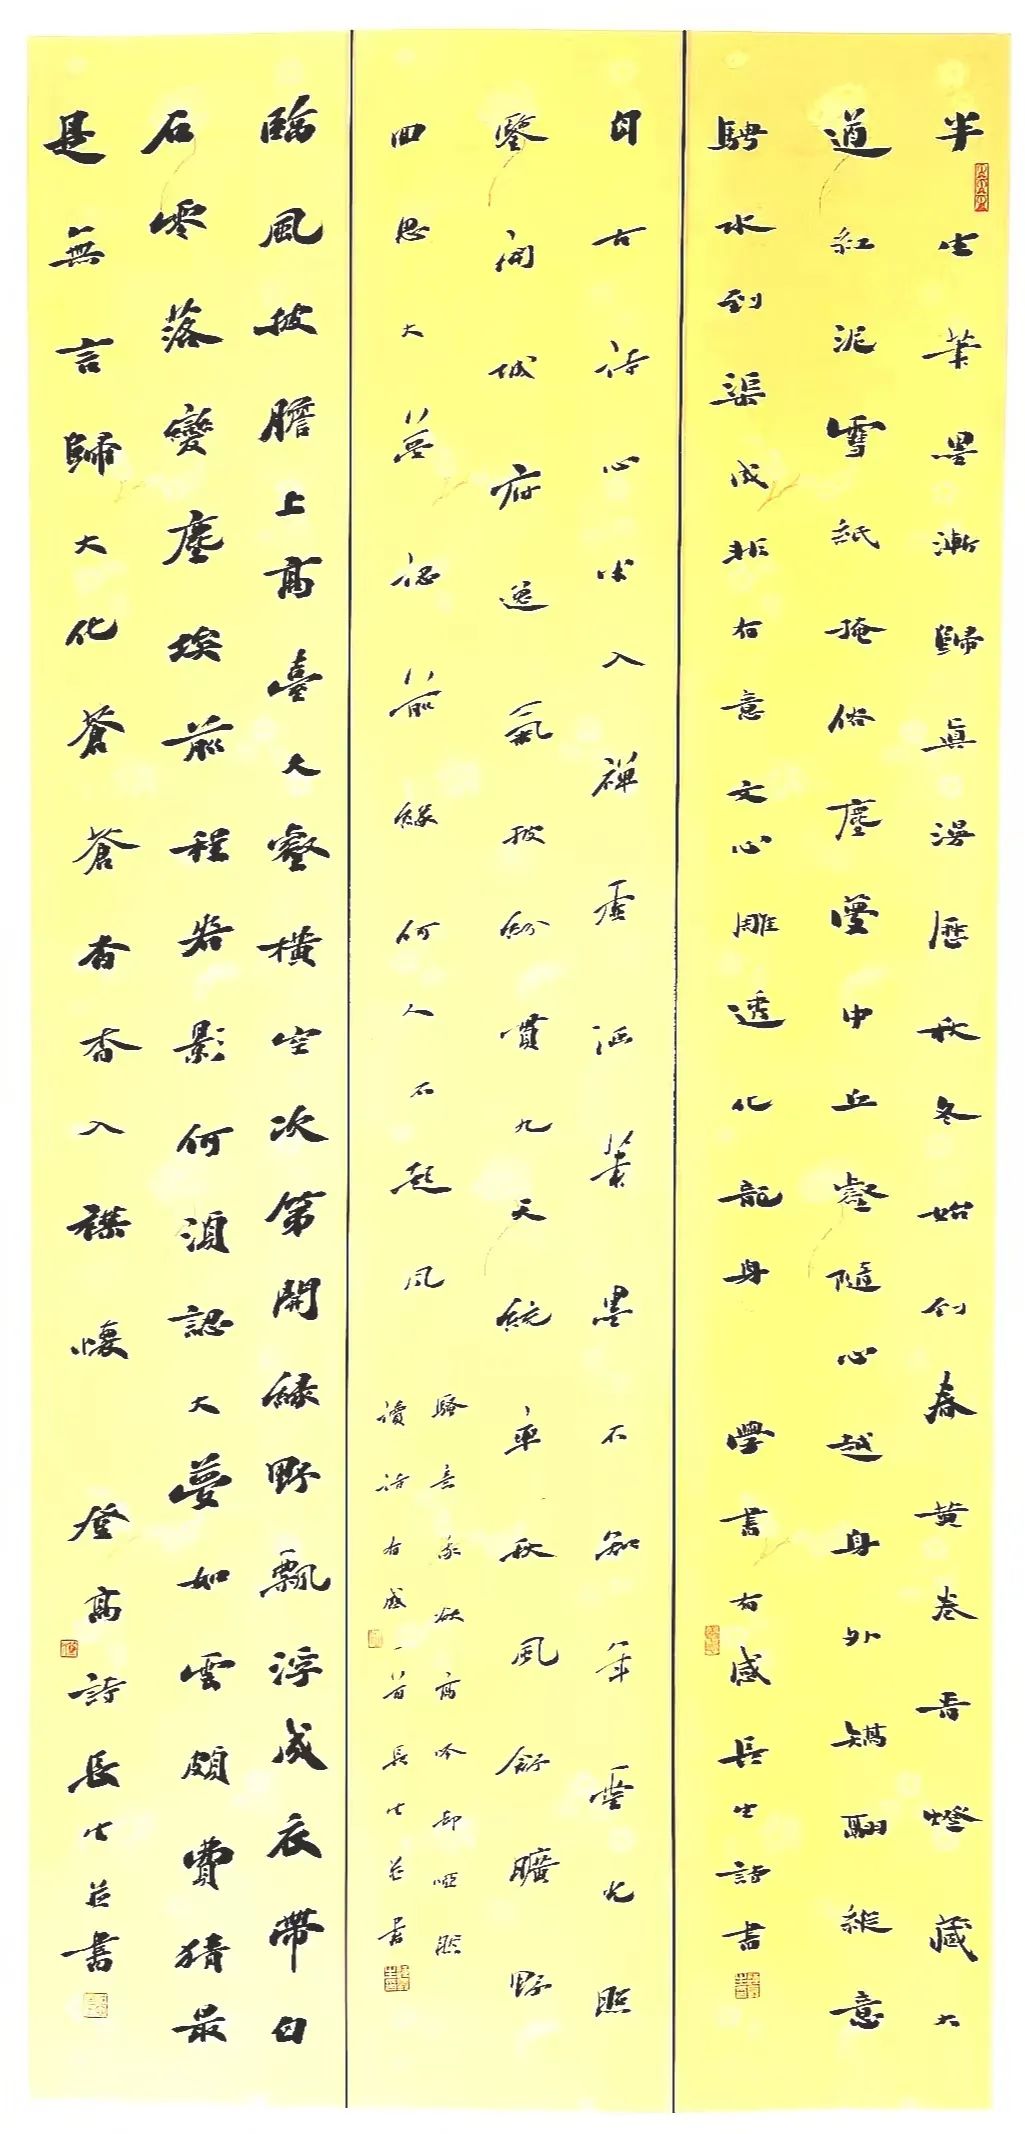 半生筆墨漸歸真漫歷秋冬始到春黄卷青燈藏大
道紅泥雪紙掩俗塵夢中丘壑隨心越身外驕翮縱意
騁水到渠成非有意文心雕透化龍身 學書有感長生詩書
自古詩心求入禪虛涵筆墨不知年雲光照
鑒開城府逸氣披紛貫九天統率秋風舒曠野
回思大夢認前緣何人不起風
騷意 欲高吟卻啞然
讀詩有感一首長生並書
臨風披膽上高臺大壑橫空次第開緑野飄浮成衣帶白
石零落變塵埃前程若影何須認大夢如雲頗費猜最
是無言歸大化蒼蒼杳杳入襟懷 登高詩長生並書